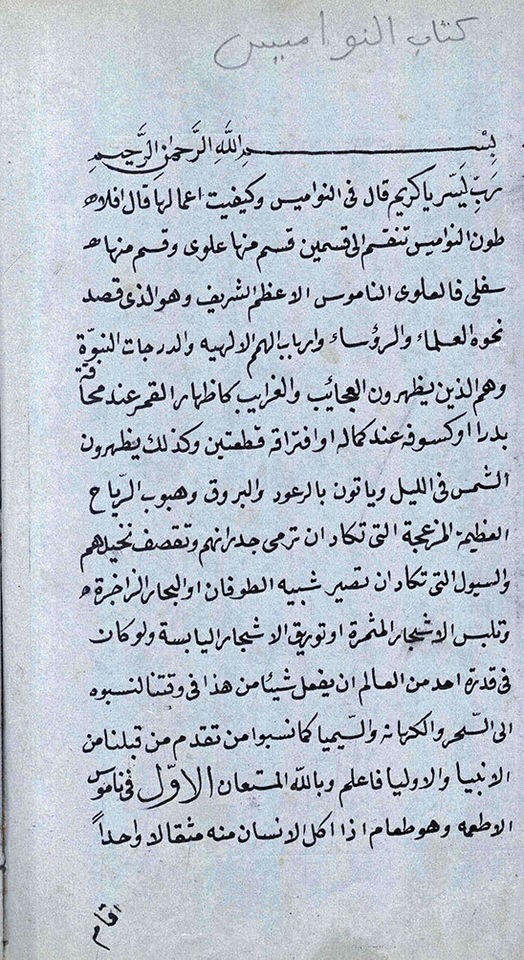 كتاب النواميس
بسم الله الرحمن الرحيم
رب يسر يا كريم قال فى النواميس وكيفيت اعمالها قال افلاه
طون النواميس تنقسم الى قسمين قسم منها علوى وقسم منها ه
سفلى فالعلوى الناموس الاعظم الشريف وهو الذى قصد
نحوه العلماء والرؤساء وارباب الهم الالهيه والدرجات النبوّة
وهم الذين يظهرون العجائيب والغرايب كاظهار القمر عند محاقة
بدرا او كسوفه عند كماله او افتراقه قطعتين وكذلك يظهرون
الشمس فى الليل وياتون بالرعود والبروق وهبوب الرّياح
العظيمة المزعجة التى تكاد ان ترمى جدرانهم وتقصف نخيلهم
والسيول التى تكاد ان تصير شبيه الطوفان او البحار الزاخرة ه
وتلبس الاشجار المثمرة او توريق الاشجار اليابسة ولو كان
فى قدرة احد من العالم ان يفعل شيئا من هذا فى وقتنا لنسبوه
الى السّحر والكهانه والسّيميا كما نسبوا من تقدم من قبلنا من
الانبيا والاوليا فاعلم وبالله المستعان الاوّل فى ناموس
الاطعمه وهو طعام اذا اكل الانسان منه مثقالا واحداً
اقام